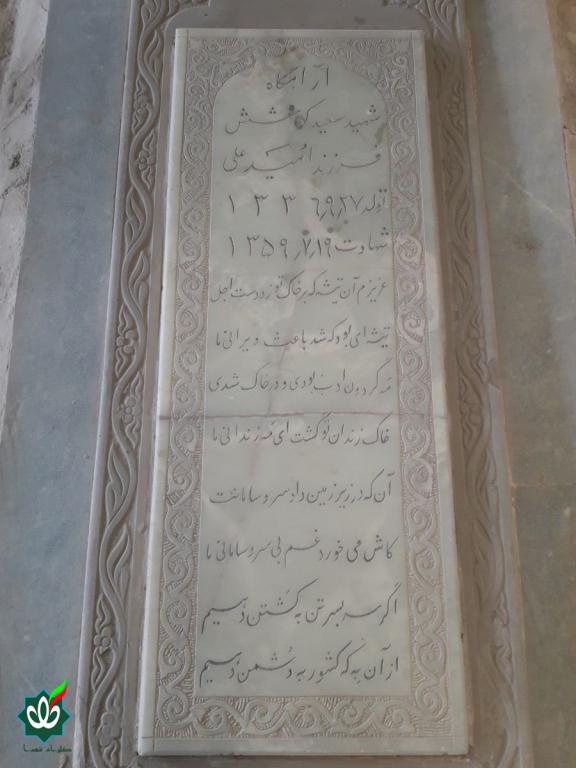 آرامگاه
شهید سعید کاوشش
فرزند امید علی
تولد ۱۳۳۶٫۹٫۲۷
شهادت ۱۳۵۹٫۷٫۱۹
عزیزم آن تیشه که بر خاک تو زد دست اجل
تیشه ای بود که شد باعث ویرانی ما
مه گردون ادب بودی و در خاک شدی
خاک زندان تو گشت ای مه زندانی ما
آن که در زیر زمین داد سر و سامانت
کاش می خورد غم بی سر و سامانی ما
اگر سر بسر تن به کشتن دهیم
از آن به که کشور به دشمن دهیم